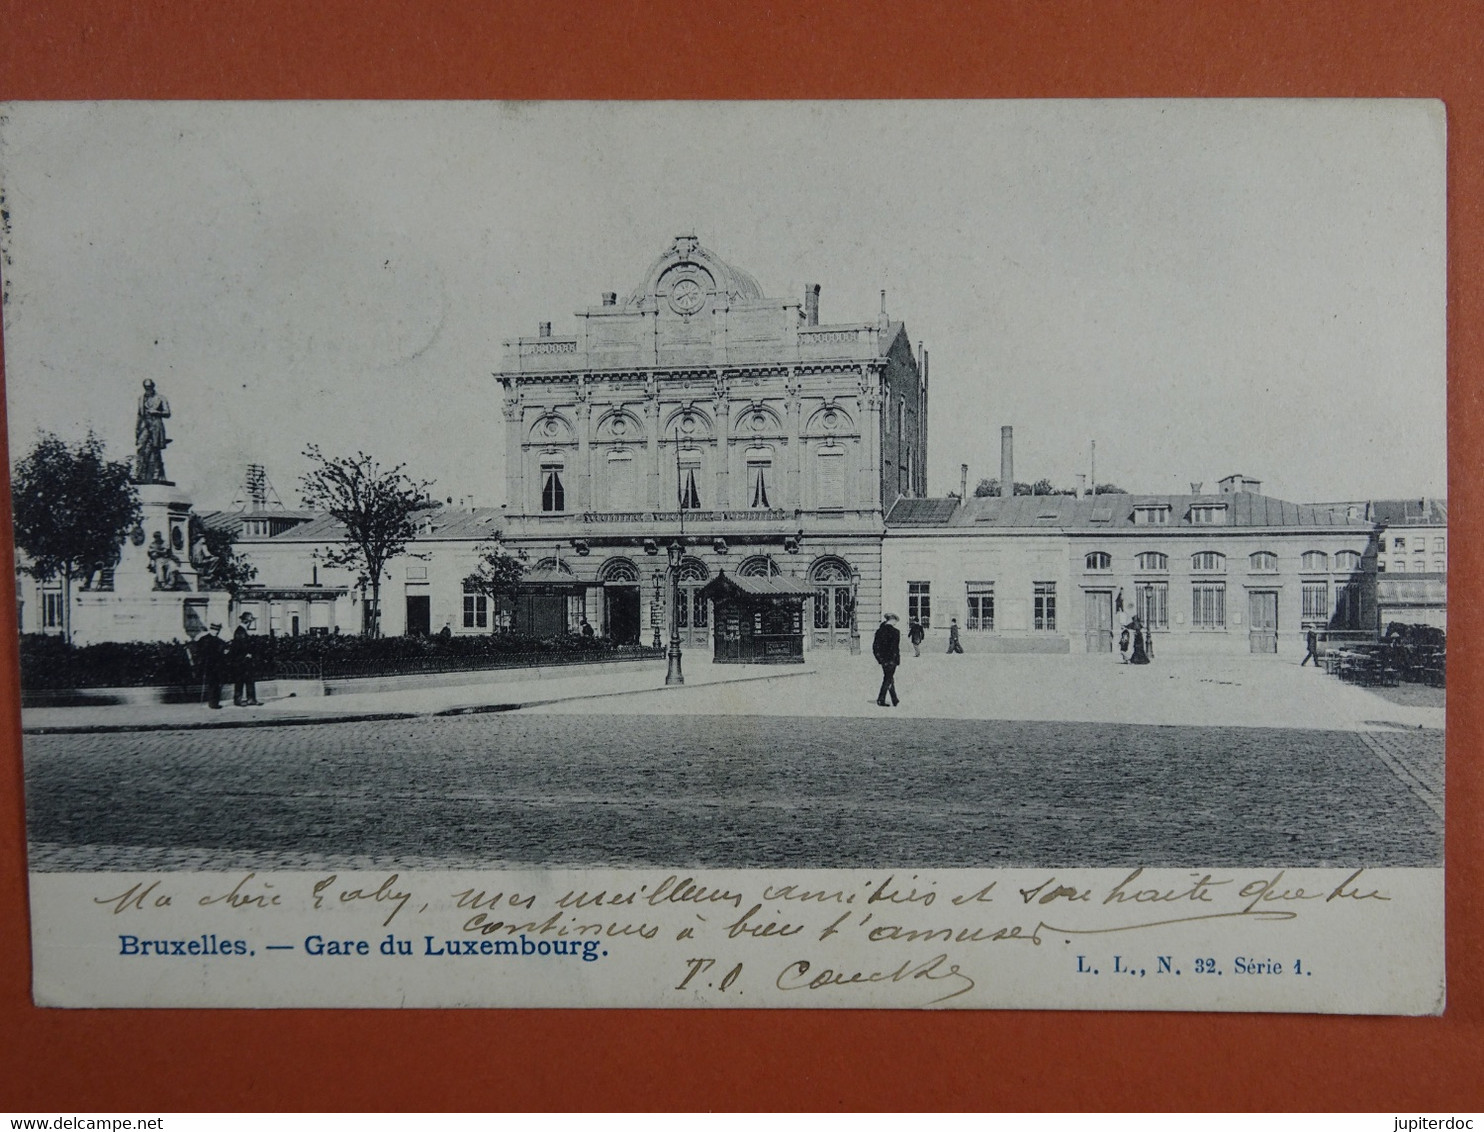 Ma chère Gaby, mes meilleurs amitiés et souhaite que tu
continues à bien t'amuser.
Bruxelles. — Gare du Luxembourg.
L. L., N. 32. Série 1.
delcampe.net
jupiterdoc